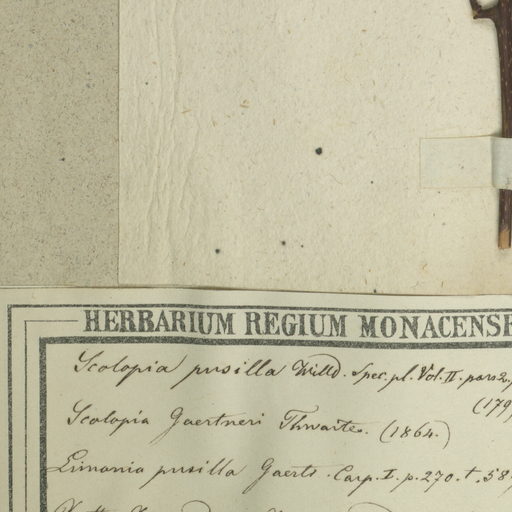 HERBARIUM REGIUM MONACENSE
Scolopia pusilla Willd. Spec. pl. Vol. II. pars 2. p
(179
Scolopia Gaertneri Thwaites. (1864.)
Limonia pusilla Gaertn. Carp. I. p. 270. t. 58